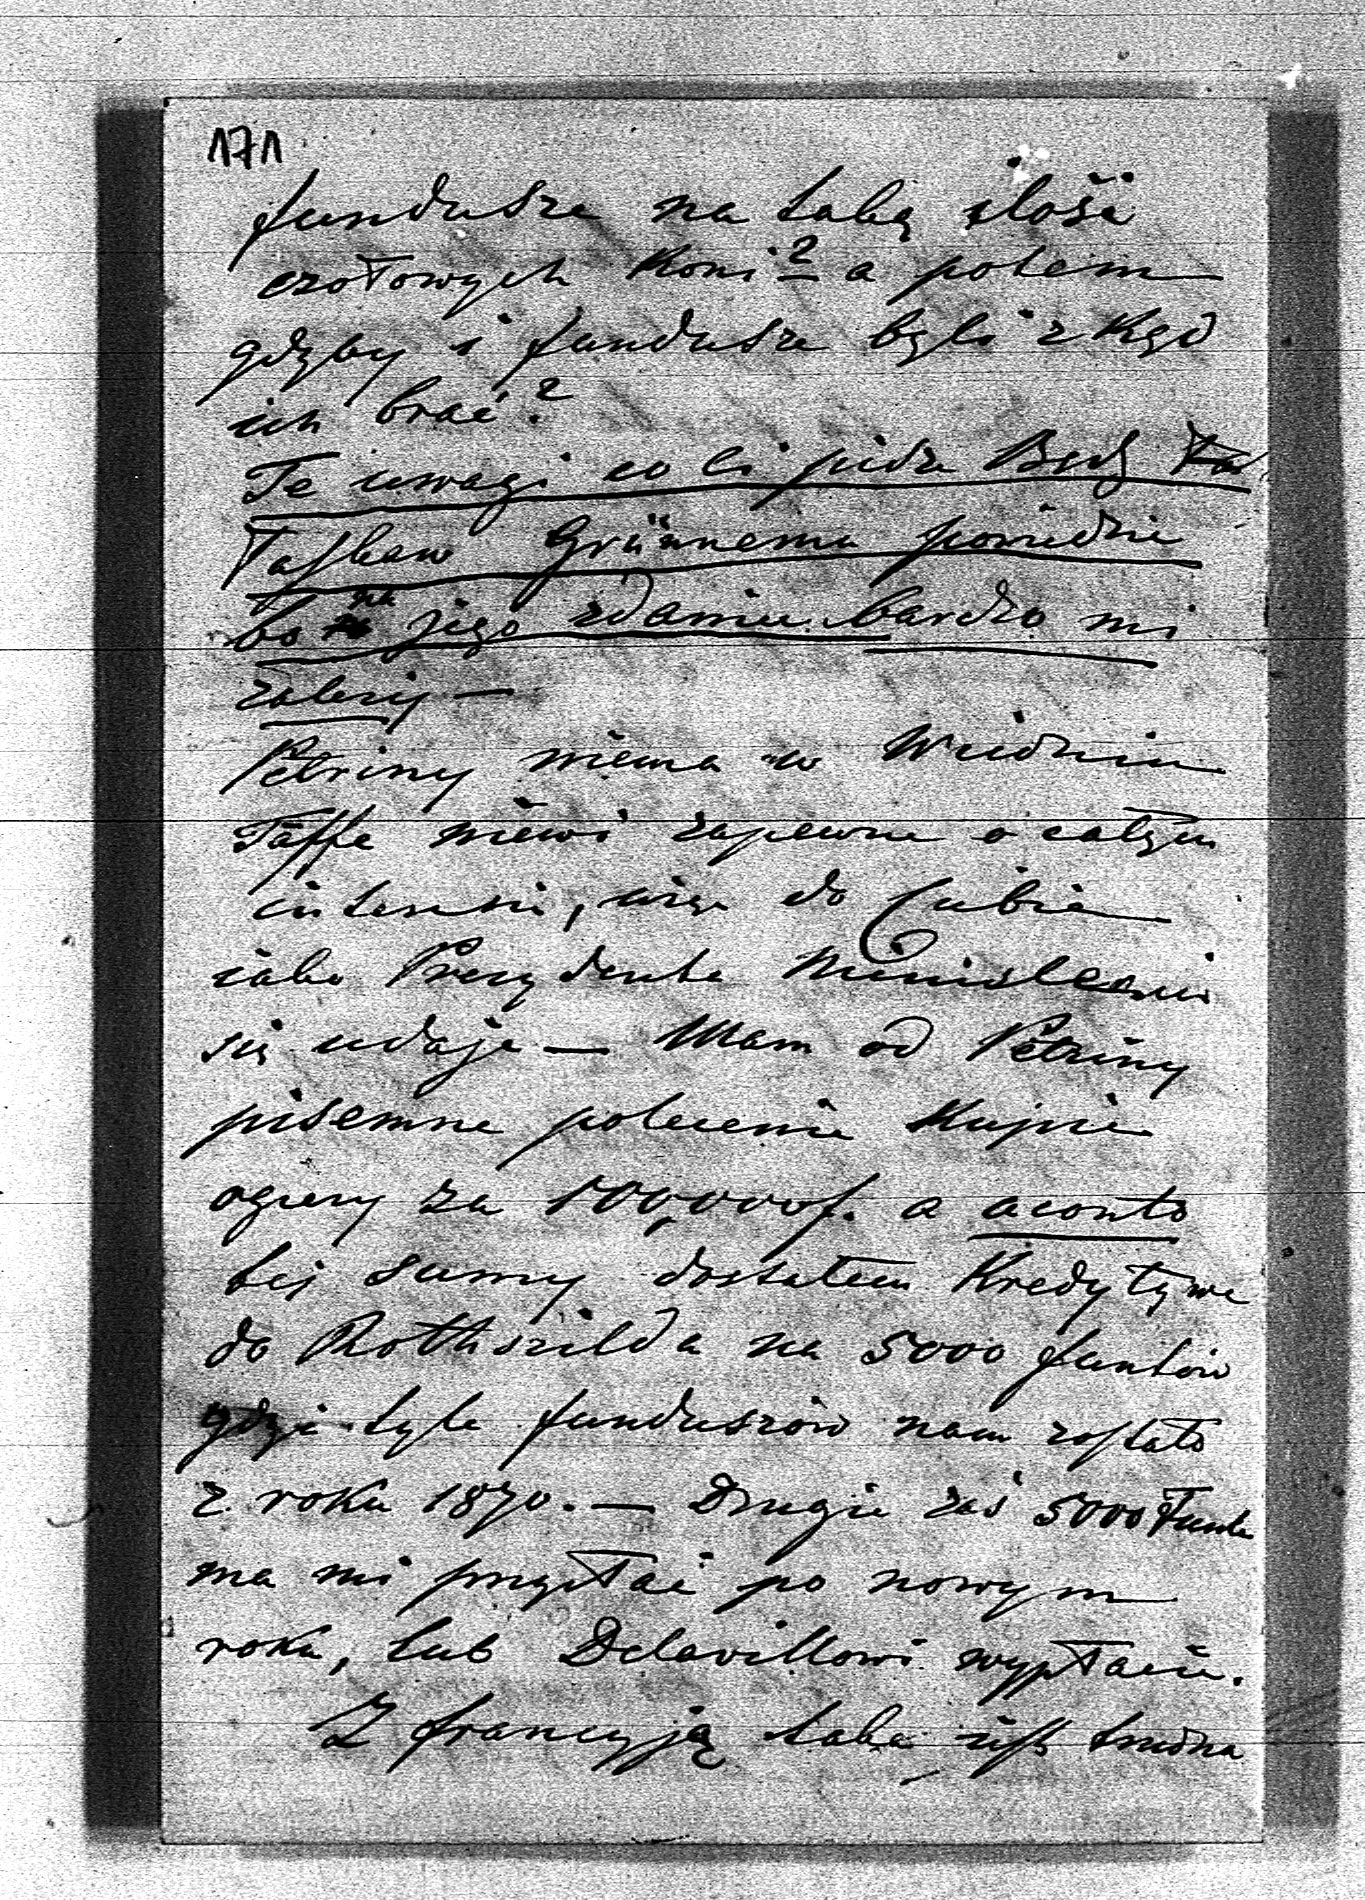 171
fundusze na taką ilość
czołowych koni? a potem
gdyby i fundusze byli z kąd
ich brać?
Te uwagi co Ci piszę Bądź
łaskaw Grünnemu powiedzie
bo na jego zdaniu bardzo mi
zależy —
Petriny niema w Wiedniu
Taffe niewi zapewne o całym
interesie, więc do Ciebie
iako Prezydenta Ministerii
się udaję — Mam od Petriny
pisemne polecenie kupić
ogiery za 100,000 f. a aconto
tej sumy dostałem Kredytywe
do Rothszilda na 5000 funtów
gdyż tyle funduszów nam zostało
z roku 1870. — Drugie zaś 5000 Funtó
ma mi przysłać po nowym
roku, lub Delavillowi wypłacić.
Z francyją taka iest trudna